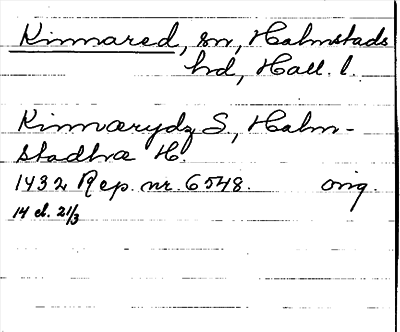 Kinnared, sn, Halmstads
hd, Hall. l.
Kinnarydz S., Halm-
stadha H.
1432 Rep. nr. 6548. orig.
14 el. 21/3